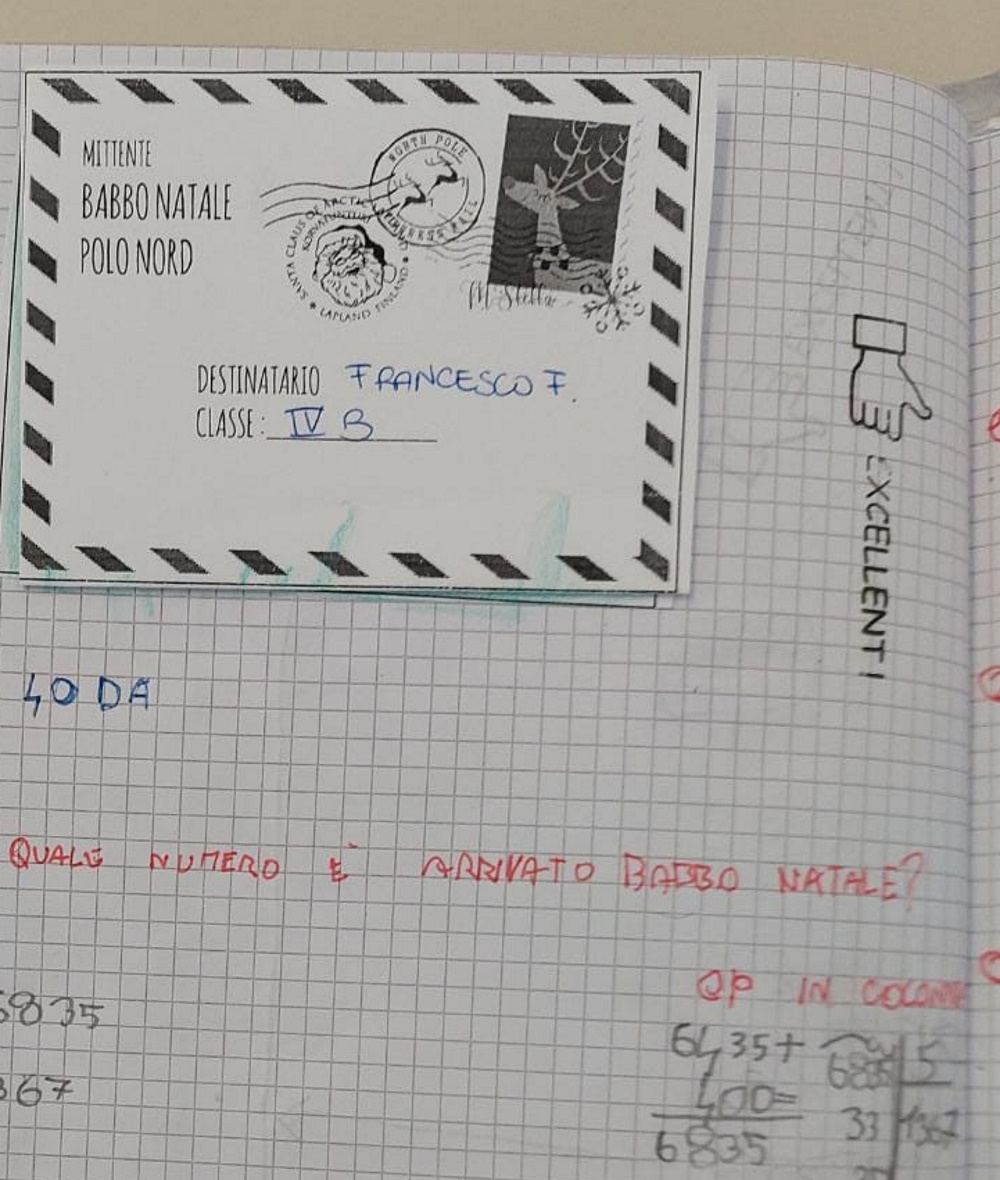 MITTENTE
BABBO NATALE
POLO NORD
NORTH POLE
EXPRESS MAIL
SANTA CLAUS OF ARCTIC
KORVATUNTURI
LAPLAND FINLAND
M. Stella
DESTINATARIO FRANCESCO F.
CLASSE: IV B
EXCELLENT!
40 DA
QUALE NUMERO È ARRIVATO BABBO NATALE?
OP IN COLONNA
6835
367
6435+
400=
6835
6835 5
33 1367